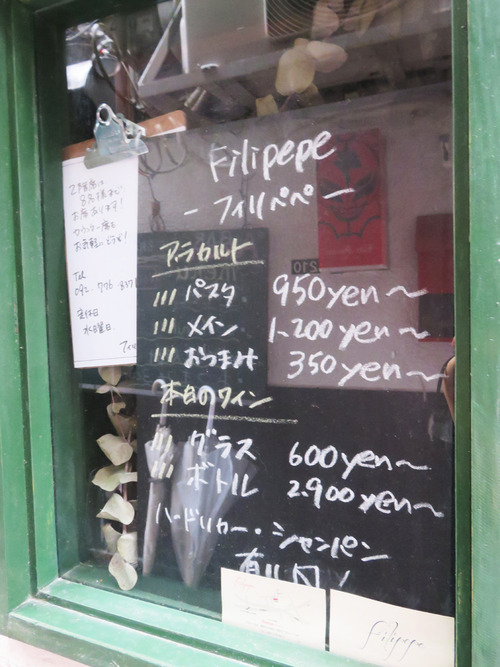 Filipepe
- フィリペペ -
アラカルト
/// パスタ 950yen〜
/// メイン 1.200yen〜
/// おつまみ 350yen〜
本日のワイン
/// グラス 600yen〜
/// ボトル 2.900yen〜
ハードリカー・シャンパン
2階席は
お席あります!
カウンター席も
お気軽にどうぞ!
Tel
092.776
定休日
水曜日.
フィリ
Filipepe